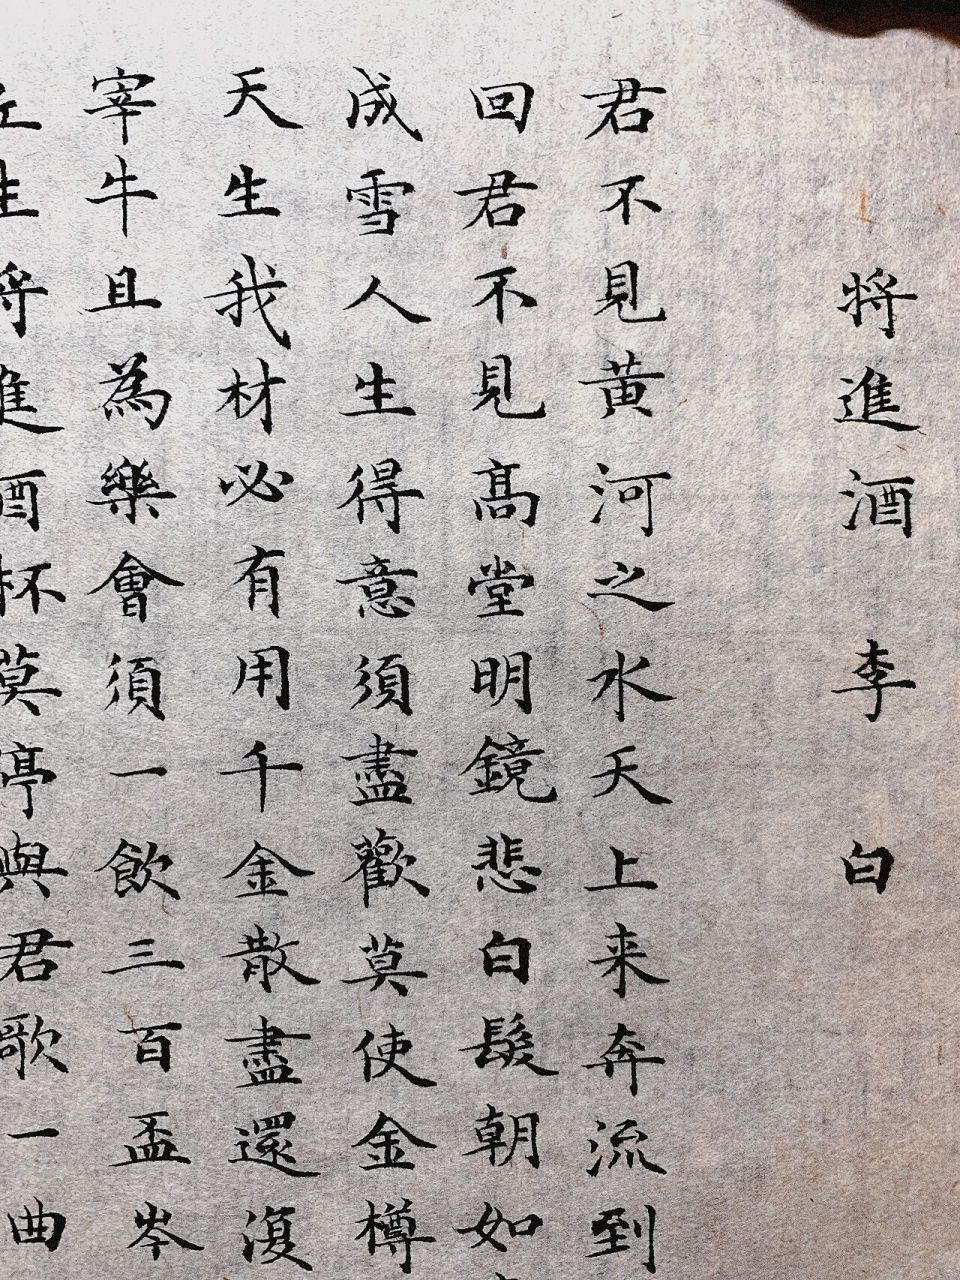 將進酒 李白
君不見黃河之水天上来奔流到
回君不見高堂明鏡悲白髮朝如
成雪人生得意須盡歡莫使金樽
天生我材必有用千金散盡還復
宰牛且為樂會須一飲三百盃岑
丘生將進酒杯莫停與君歌一曲